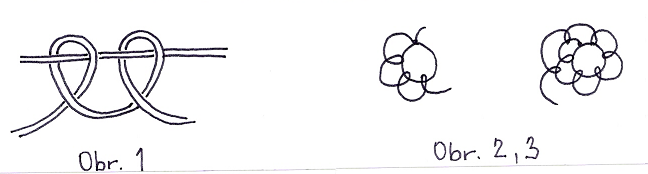 Obr. 1
Obr. 2,3